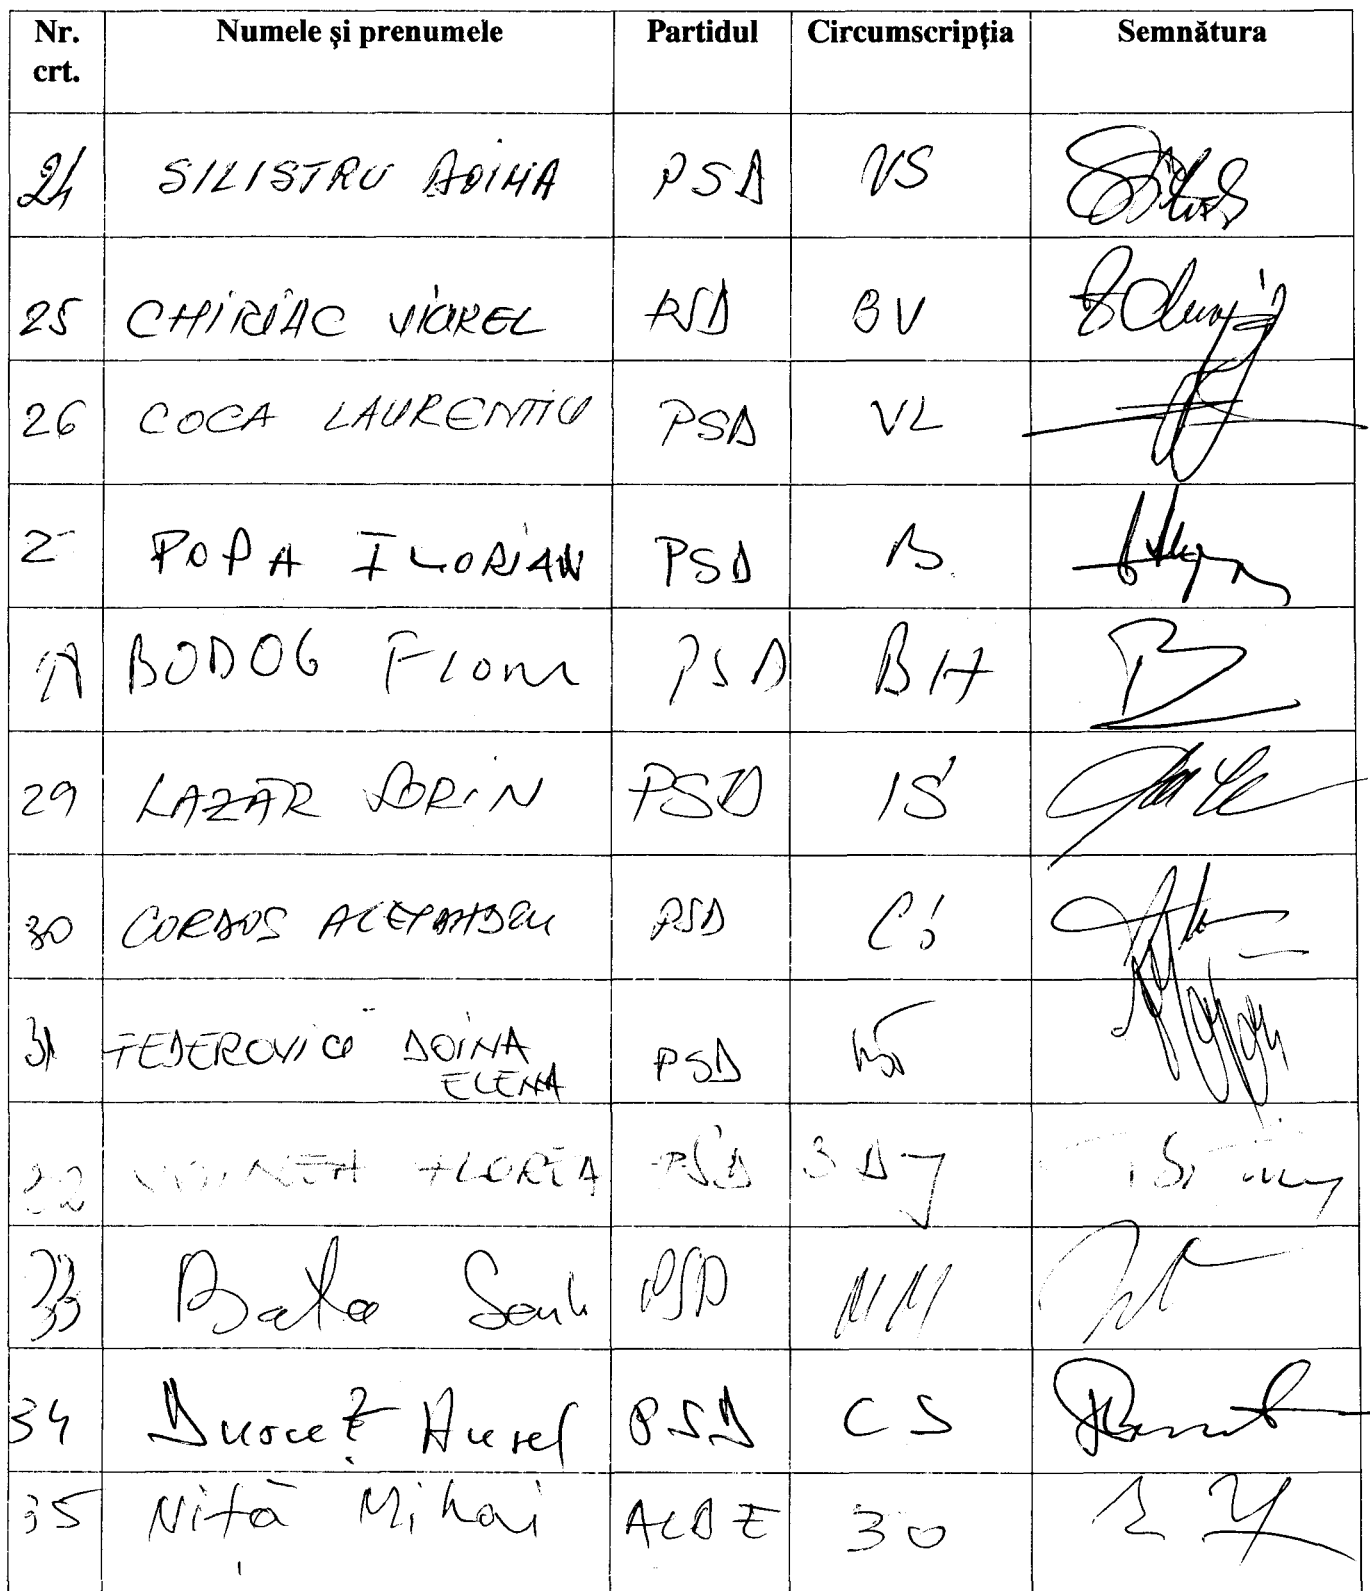 Nr. crt. Numele și prenumele Partidul Circumscripția Semnătura
24 SILISTRU DOINA PSD VS
25 CHIRIAC VIOREL PSD BV
26 COCA LAURENTIU PSD VL
2 POPA FLORIAN PSD B
BODOG Florin PSD BH
29 LAZAR SORIN PSD IS
30 CORDOS ALEXANDRU PSD CJ
31 FEDEROVICI DOINA ELENA PSD
32 FLOREA PSD
33 PSD MM
34 Aurel PSD CS
35 Niță Mihai ALDE 30